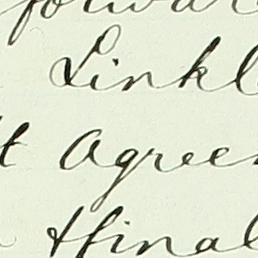 forward
Linkl
t Agreem
final